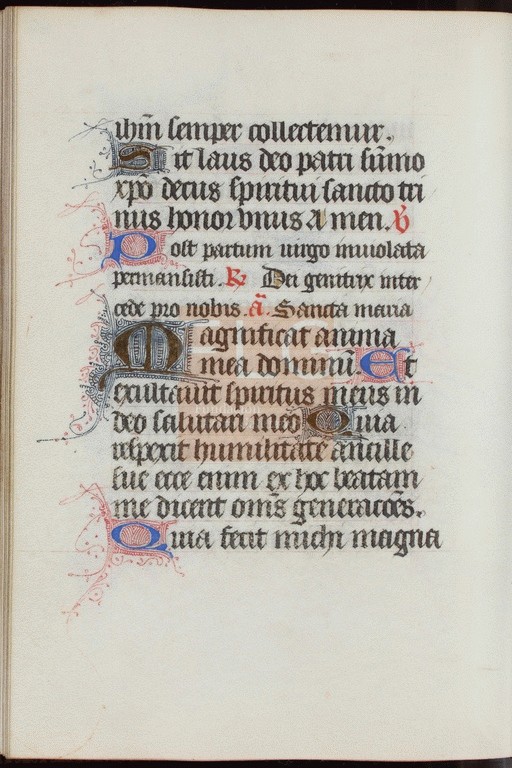 ihm̄ semper collectemur.
Sit laus deo patri sūmo
xpō decus spiritui sancto tri
nus honor vnus Amen. V
Post partum uirgo inuiolata
permansisti. R Dei genitrix inter
cede pro nobis. a͞. Sancta maria
Magnificat anima
mea dominū Et
exultauit spiritus meus in
deo salutari meo Quia
respexit humilitate ancille
sue ecce enim ex hoc beatam
me dicent om̄s generacōes.
Quia fecit michi magna